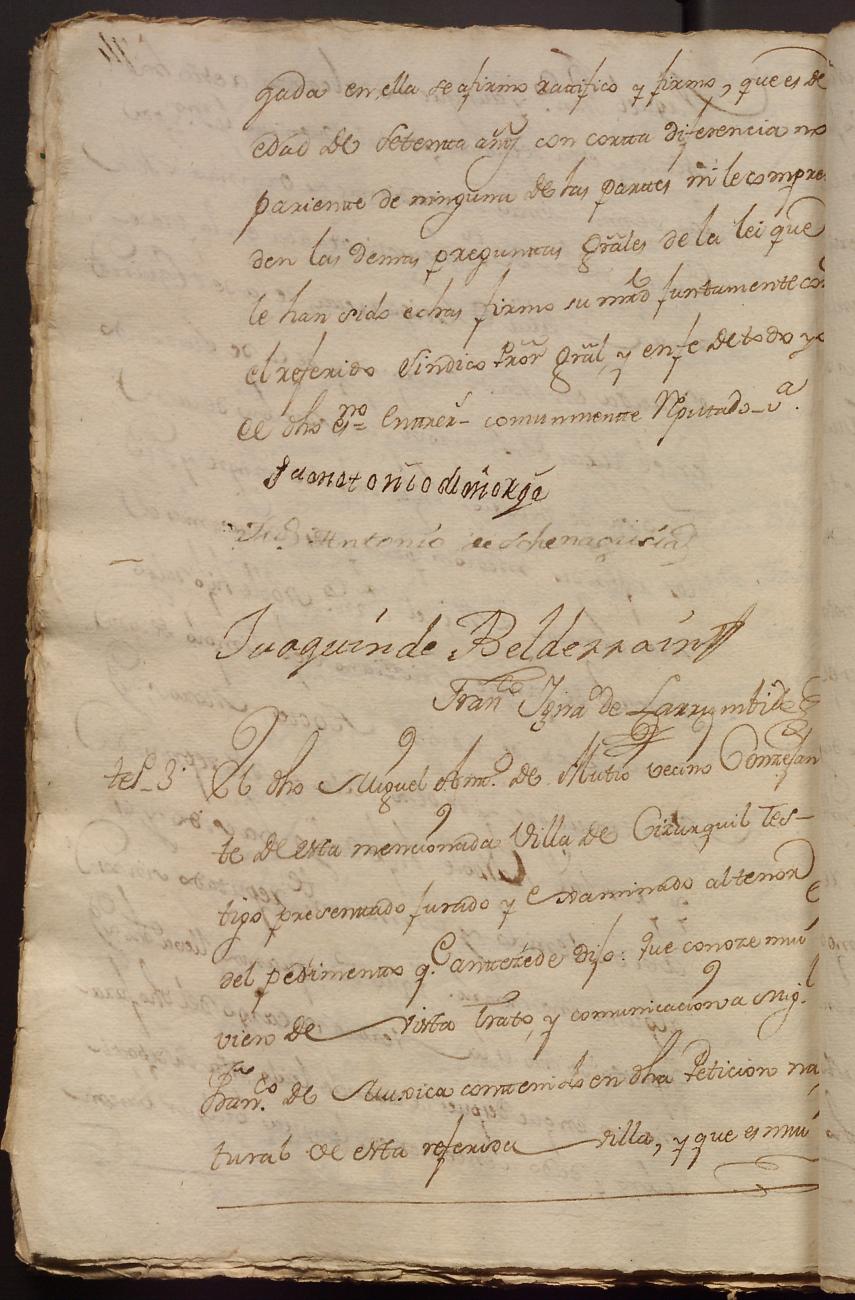 gada en ella se afirmo ratifico y firmo, que es de
edad de setenta añ̃s con corta diferencia no
pariente de ninguna de las partes ni le compre-
den las demas preguntas grãles de la lei que
le han sido echas firmo su mrd juntamente con
el referido Sindico Pror grãl y en fe de todo yo
el dho esno Entrer- comunmente Rputado-va.
Juan antonio de
Antonio de
Juaquin de Belderrain
Franco Ignao de Larrumbide
tesº 3º El dho Miguel Antº de Mutio vecino Conzejan
te de esta mencionada Villa de Cizurquil Tes-
tigo presentado jurado y examinado al tenor
del pedimento q. antezede dijo: que conoze mui
vien de vista trato, y comunicacion a Migl
Franco de Muxica contenido en dha Peticion na
tural de esta referida villa, y que es mui